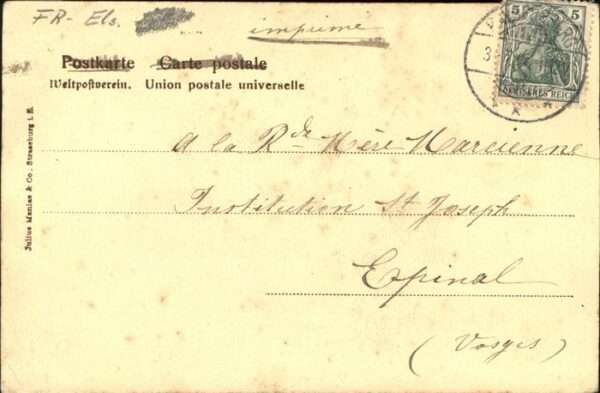 FR- Els.
imprimé
Postkarte Carte postale
Weltpostverein. Union postale universelle
5 5
DEUTSCHES REICH
Julius Manias & Co., Strassburg i. E.
A la Rde Mère Marcienne
Institution St Joseph
Epinal
(Vosges)